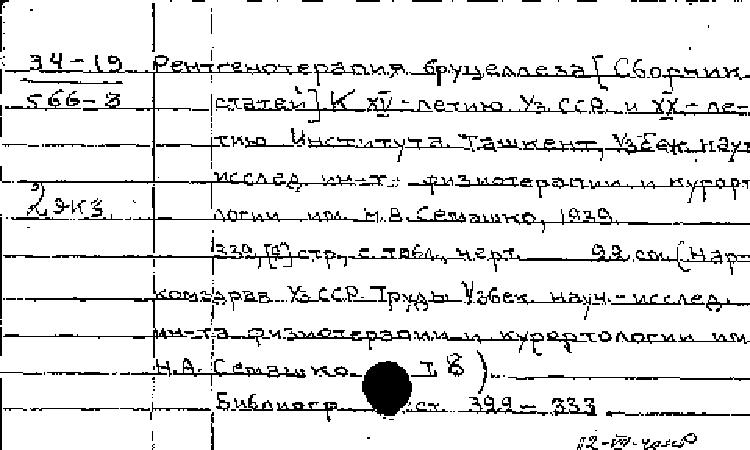 34-19 Рентгенотерапия бруцеллеза [Сборник
566-3 статей] К XV-летию Уз.ССР и XX-ле-
тию Института. Ташкент, Узбек. науч
исслед. ин-т. физиотерапии и курорт
2 экз логии им. Н.А. Семашко, 1939.
339, [2] стр., с табл., черт. 22 см. (Нар-
комздрав УзССР. Труды Узбек. науч.-исслед.
ин-та физиотерапии и курортологии им.
Н.А. Семашко. Т. 8)
Библиогр. ст. 322-333